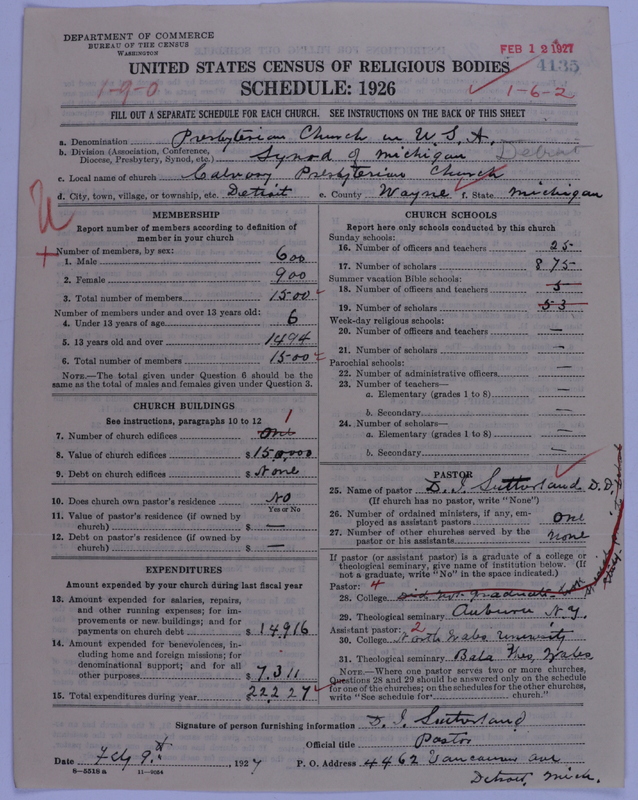 DEPARTMENT OF COMMERCE
BUREAU OF THE CENSUS
WASHINGTON
FEB 12 1927
4135
UNITED STATES CENSUS OF RELIGIOUS BODIES
1-9-0
SCHEDULE: 1926
1-6-2
FILL OUT A SEPARATE SCHEDULE FOR EACH CHURCH. SEE INSTRUCTIONS ON THE BACK OF THIS SHEET
a. Denomination Presbyterian Church in U.S.A.
b. Division (Association, Conference, Diocese, Presbytery, Synod, etc.) Synod of Michigan Detroit
c. Local name of church Calvary Presbyterian Church
d. City, town, village, or township, etc. Detroit e. County Wayne f. State Michigan
MEMBERSHIP
Report number of members according to definition of
member in your church
Number of members, by sex:
1. Male 600
2. Female 900
3. Total number of members 1500
Number of members under and over 13 years old:
4. Under 13 years of age 6
5. 13 years old and over 1494
6. Total number of members 1500
NOTE.—The total given under Question 6 should be
same as the total of males and females given under Question 3.
CHURCH BUILDINGS
See instructions, paragraphs 10 to 12 1
7. Number of church edifices one
8. Value of church edifices $150,000
9. Debt on church edifices $ None
10. Does church own pastor's residence No
Yes or No
11. Value of pastor's residence (if owned by
church) $ —
12. Debt on pastor's residence (if owned by
church) $ —
EXPENDITURES
Amount expended by your church during last fiscal year
13. Amount expended for salaries, repairs,
and other running expenses; for im-
provements or new buildings; and for
payments on church debt $14,916
14. Amount expended for benevolences, in-
cluding home and foreign missions; for
denominational support; and for all
other purposes $7,311
15. Total expenditures during year $22,227
CHURCH SCHOOLS
Report here only schools conducted by this church
Sunday schools:
16. Number of officers and teachers 25
17. Number of scholars 875
Summer vacation Bible schools:
18. Number of officers and teachers 5
19. Number of scholars 53
Week-day religious schools:
20. Number of officers and teachers —
21. Number of scholars —
Parochial schools:
22. Number of administrative officers —
23. Number of teachers—
a. Elementary (grades 1 to 8) —
b. Secondary —
24. Number of scholars—
a. Elementary (grades 1 to 8) —
b. Secondary —
PASTOR
25. Name of pastor D. I. Sutherland, D.D.
(If church has no pastor, write "None")
26. Number of ordained ministers, if any, em-
ployed as assistant pastors one
27. Number of other churches served by the
pastor or his assistants none
If pastor (or assistant pastor) is a graduate of a college or
theological seminary, give name of institution below. (If
not a graduate, write "No" in the space indicated.)
Pastor: 4
28. College Did not graduate
29. Theological seminary Auburn N.Y.
Assistant pastor: 2
30. College North Wales University
31. Theological seminary Bala Wales
NOTE.—Where one pastor serves two or more churches,
Questions 28 and 29 should be answered only on the schedule
for one of the churches; on the schedules for the other churches,
write "See schedule for church."
Signature of person furnishing information D. I. Sutherland
Official title Pastor
Date Feby 9th, 1927 P. O. Address 4462 Vancouver ave
8-5518 a 11-9054
Detroit, Mich.